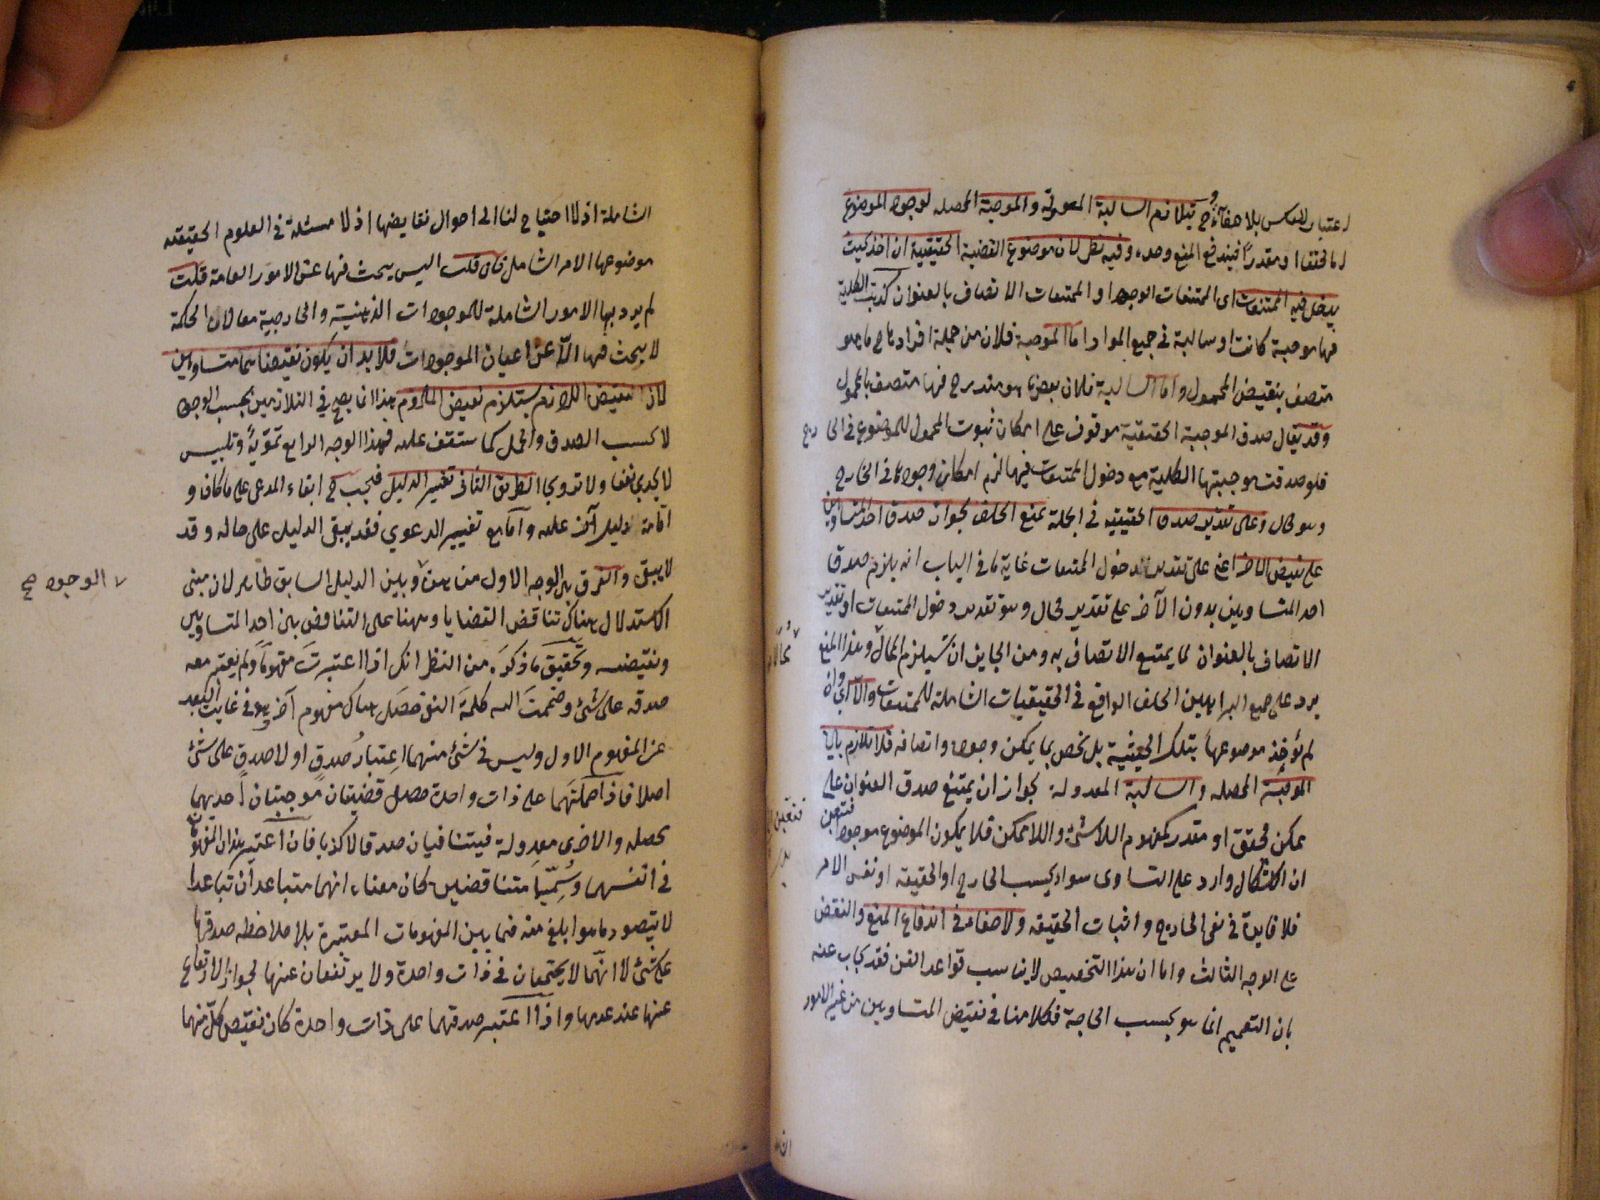 لاعتبار للعكس بلا خفاء وح يتلازم السالبة المعدولة والموجبة المحصلة لوجود الموضوع
اما محققا او مقدرا فيندفع المنع وحده وفيه نظر لان موضوع القضية الحقيقية ان اخذ بحيث
يدخل فيه الممتنعات اى الممتنعات الوجود او الممتنعات الاتصاف بالعنوان كذبت الكلية
فيها موجبة كانت او سالبة فى جميع المواد اما الموجبة فلان من جملة افراد ج ما هو
متصف بنقيض المحمول واما السالبة فلان بعض ما هو مندرج فيها متصف بالمحمول
وقد يقال صدق الموجبة الحقيقية موقوف على امكان ثبوت المحمول للموضوع فى الخارج
فلو صدقت موجبتها الكلية مع دخول الممتنعات فيها لزم امكان وجودها فى الخارج
وهو محال وعلى تقدير صدق الحقيقية فى الجملة يمنع الخلف لجواز صدق احد المتساويين
على نقيض الاخر على تقدير دخول الممتنعات غاية ما فى الباب انه يلزم صدق
احد المتساويين بدون الآخر على تقدير محال وهو تقدير دخول الممتنعات او تقدير
الاتصاف بالعنوان لما يمتنع الاتصاف به ومن الجايز ان يستلزم المحال وهذا المنع
يرد على جميع البراهين الخلف الواقع فى الحقيقيات الشاملة للممتنعات والا اى وان
لم يؤخذ موضوعها بتلك الحيثية بل تخص بما يمكن وجوده واتصافه فلا تلازم بين
الموجبة المحصلة والسالبة المعدولة لجواز ان يمتنع صدق العنوان على
ممكن محقق او مقدر كمفهوم اللاشئ واللاممكن فلا يكون الموضوع موجودا فتعين
ان الاشكال وارد على التساوى سواء كيسب الخارج او الحقيقة او نفس الامر
فلا فايدة فى نفى الخارج واثبات الحقيقة ولا خفاء فى اندفاع المنع والنقض
على الوجه الثالث واما ان هذا التخصيص لا يناسب قواعد الفن فقد يجاب عنه
بان التعميم انما هو بحسب الحاجة فكلامنا فى نقيض المتساويين من غير الامور
الشاملة اذ لا احتياج لنا الى احوال نقايضها اذ لا مسئلة فى العلوم الحقيقية
موضوعها الامر الشامل فان قلت اليس يبحث فيها عن الامور العامة قلت
لم يرد بها الامور الشاملة للموجودات الذهنية والخارجية معا لان الحكمة
لا يبحث فيها الا عن اعيان الموجودات فلا بد ان يكون نقيضاهما متساويين
لان نقيض اللازم يستلزم نقيض الملزوم هذا انما يصح فى التلازم بين بحسب الوجود
لا بحسب الصدق والحمل كما ستقف عليه فهذا الوجه الرابع تمويه وتلبيس
لا يجدى نفعا ولا تروبج الطريق الثانى تغيير الدليل فيجب ح ابقاء المدعى على ما كان و
اقامة دليل آخر عليه واما مع تغيير الدعوى فقد يبقى الدليل على حاله وقد
لا يبقى والفرق بين الوجه الاول من هن وبين الدليل السابق ظاهر لان مبنى
٧ الوجوه صح
الاستدلال هناك تناقض القضايا وههنا على التناقض بين احد المتساويين
ونقيضه وتحقيق ما ذكره من النظر انك اذا اعتبرت مفهوما ولم يعتبر معه
صدقه على شئ وضممت اليه كلمة النفى حصل هناك مفهوم آخر هو فى غاية البعد
عن المفهوم الاول وليس فى شئ منهما اعتبار صدق او لا صدق على شئ
اصلا فاذا حملتهما على ذات واحدة حصل قضيتان موجبتان احديهما
محصلة والاخرى معدولة فيتنافيان صدقا لا كذبا فان اعتبر هذان المفهومان
فى انفسهما وسميا متناقضين كان معناه انهما متباعدان تباعدا
لا يتصور ما هو ابلغ منه فيما بين المفهومات المعتبرة بلا ملاحظة صدقها
على شئ لا انهما لا يجتمعان فى ذات واحدة ولا يرتفعان عنها لجواز الارتفاع
عنها عند عدمها واذا اعتبر صدقهما على ذات واحدة كان نقيض كل منهما